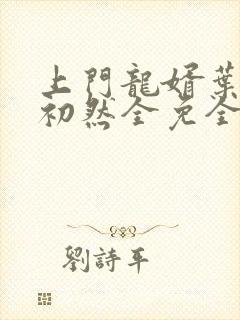 上門龍婿葉
初然全免全
劉詩平